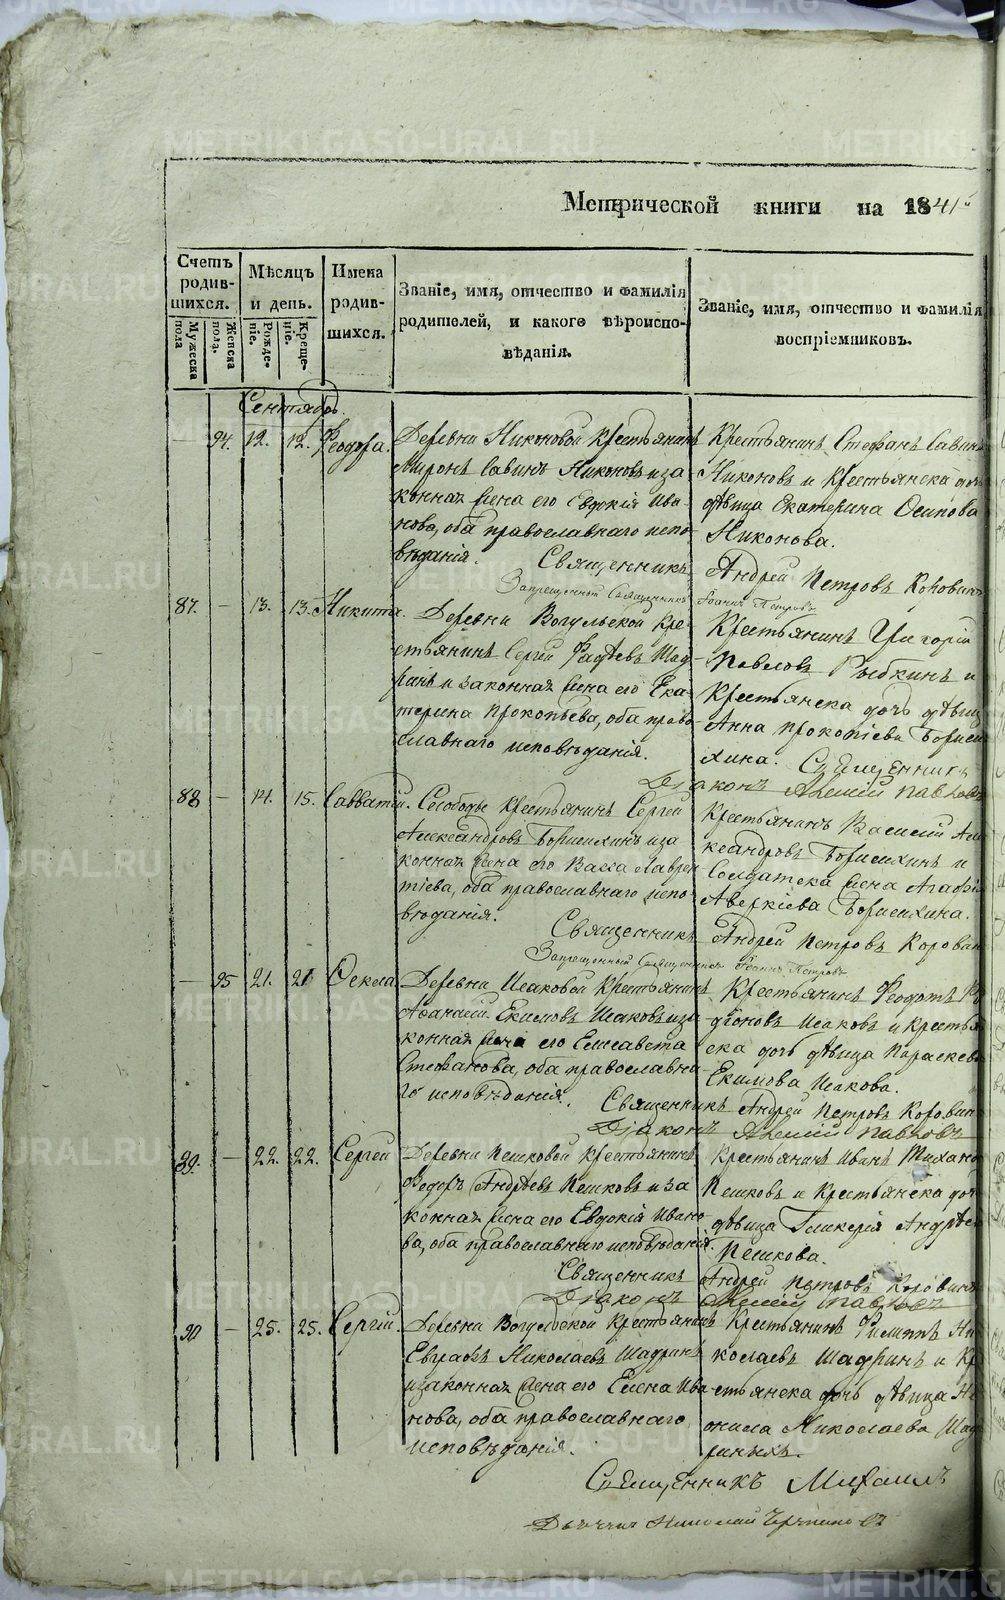 Метрической книги на 1841й
Счетъ родив-шихся.
Мужеска пола
Женска пола.
Мѣсяцъ и день.
Рожде-ніе.
Креще-ніе.
Имена родив-шихся.
Званіе, имя, отчество и фамилія
родителей, и какого вѣроиспо-
вѣданія.
Званіе, имя, отчество и фамилія
воспріемниковъ.
Сентябрь.
— 94. 12. 12. Феодора.
Деревни Никоновой Крестьянинъ
Миронъ Савинъ Никоновъ и за
конная жена его Евдокія Ива
нова, оба православнаго испо-
вѣданія.
Крестьянинъ Стефанъ Савинъ
Никоновъ и Крестьянска дочь
дѣвица Екатерина Осипова
Никонова.
Священникъ Андрей Петровъ Коровинъ
Запрещенный Священникъ Іоаннъ Петровъ
87. — 13. 13. Никита.
Деревни Вогульской Кре-
стьянинъ Сергей Фадѣевъ Шад-
ринъ и законная жена его Ека
терина Прокопьева, оба право
славнаго исповѣданія.
Крестьянинъ Григорій
Павловъ Рыбкинъ и
Крестьянска дочь дѣвица
Анна Прокопіева Бориси
хина. Священникъ
Діаконъ Алексій Павловъ
88 — 14. 15. Савватій.
Слободы Крестьянинъ Сергей
Александровъ Борисихинъ и за
конная жена его Васса Лаврен
тіева, оба православнаго испо-
вѣданія.
Крестьянинъ Василій Але
ксандровъ Борисихинъ и
Солдатска жена Агафія
Аверкіева Борисихина.
Священникъ Андрей Петровъ Коровин
Запрещенный Священникъ Іоаннъ Петровъ
— 95 21. 21 Фекла.
Деревни Исаковой Крестьянинъ
Аѳанасій Екимовъ Исаковъ и за
конная жена его Елисавета
Стефанова, оба православна-
го исповѣданія.
Крестьянинъ Феодотъ
Исаковъ и Крестьян
ска дочь дѣвица Параскева
Екимова Исакова.
Священникъ Андрей Петровъ Коровин
Діаконъ Алексій Павловъ
89. — 22. 22. Сергей
Деревни Пешковой Крестьянинъ
Федоръ Андрѣевъ Пешковъ и за
конная жена его Евдокія Ивано
ва, оба православнаго исповѣданія.
Крестьянинъ Иванъ
Пешковъ и Крестьянска доч
дѣвица Гликерія Андрѣев
Пешкова.
Священникъ Андрей Петровъ Коровинъ
Діаконъ Алексій Павловъ
90 — 25. 25. Сергій.
Деревни Вогульской Крестьянинъ
Евграфъ Николаевъ Шадринъ
и законная жена его Елена Ива
нова, оба православнаго
исповѣданія.
Крестьянинъ Филиппъ Ни
колаевъ Шадринъ и Кр
естьянска дочь дѣвица Не
онила Николаева Шад
риныхъ.
Священникъ Михаилъ
Дьячокъ Николай
METRIKI.GASO-URAL.RU